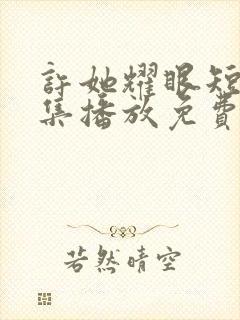 許她耀眼短
集播放免費
若然晴空